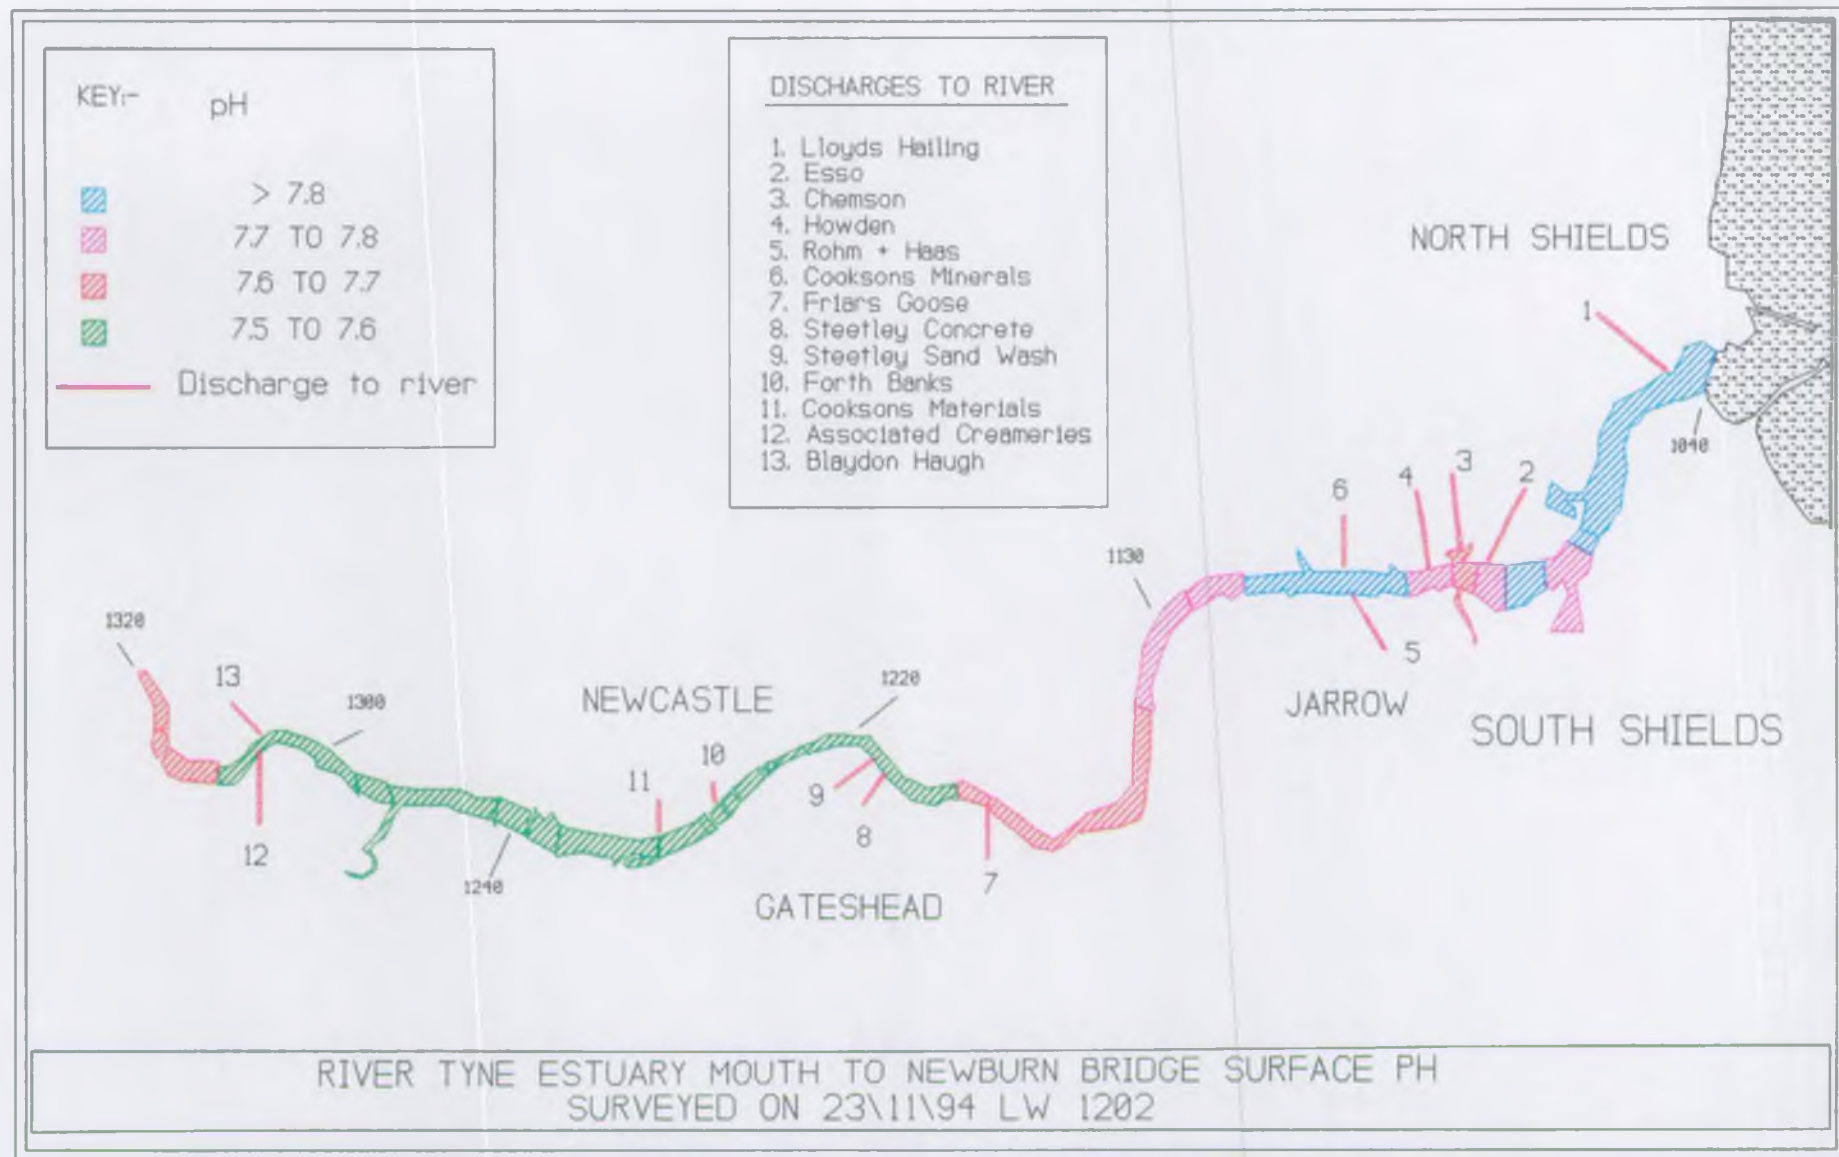 KEY:-
pH
> 7.8
7.7 TO 7.8
7.6 TO 7.7
7.5 TO 7.6
Discharge to river
DISCHARGES TO RIVER
1. Lloyds Hailing
2. Esso
3. Chemson
4. Howden
5. Rohm + Haas
6. Cooksons Minerals
7. Friars Goose
8. Steetley Concrete
9. Steetley Sand Wash
10. Forth Banks
11. Cooksons Materials
12. Associated Creameries
13. Blaydon Haugh
NORTH SHIELDS
1
1040
2
3
4
6
5
1130
JARROW
SOUTH SHIELDS
1320
13
1300
12
NEWCASTLE
1220
10
11
9
8
7
1240
GATESHEAD
RIVER TYNE ESTUARY MOUTH TO NEWBURN BRIDGE SURFACE PH
SURVEYED ON 23\11\94 LW 1202